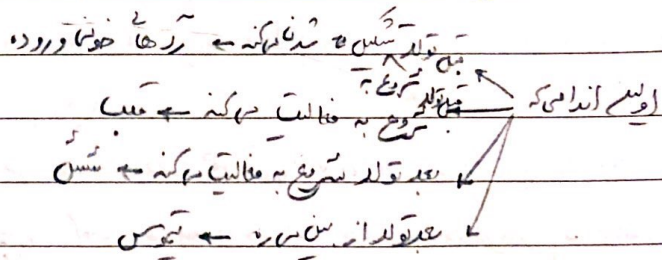 قبل تولد شروع به تشکیل شدن می‌کنه ← رگ های خونی و روده
اولین اندامی که
قبل تولد شروع به فعالیت می‌کنه ← قلب
بعد تولد شروع به فعالیت می‌کنه ← شش
بعد تولد از بین میره ← تیموس